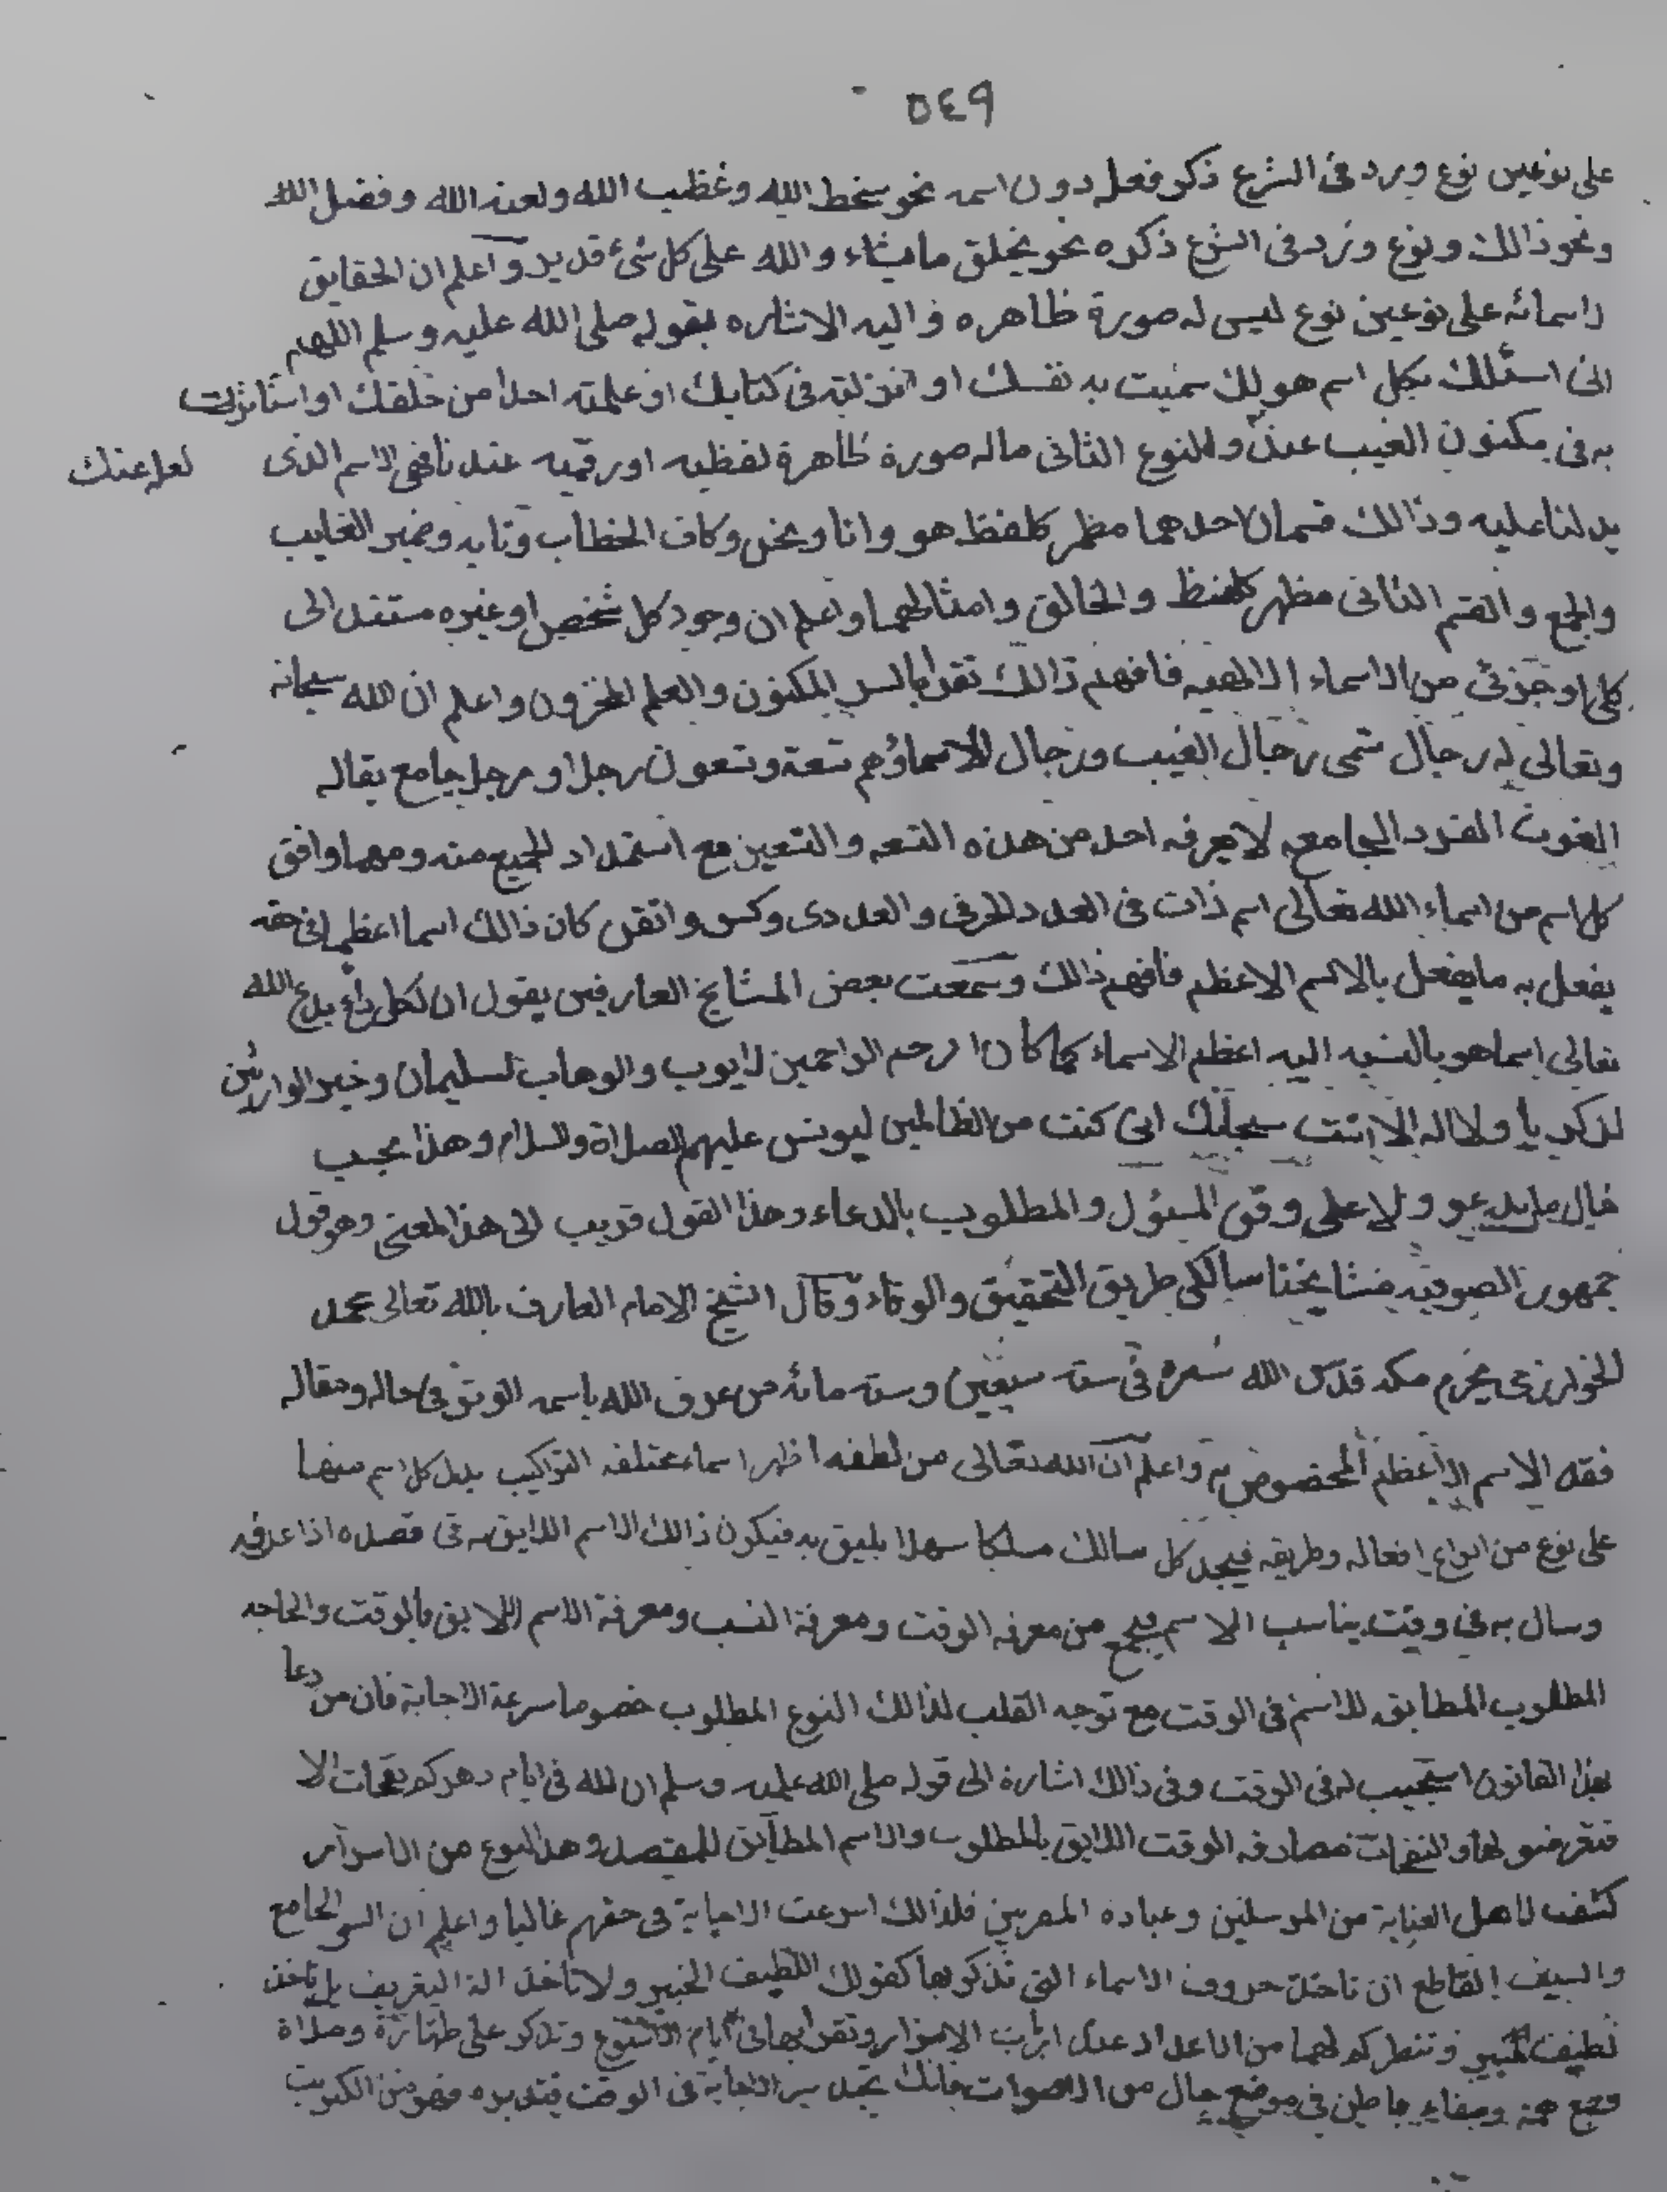 ٥٤٩
على نوعين نوع ورد في الشرع ذكر فعله دون اسمه نحو سخط الله وغظب الله ولعنة الله وفضل الله
ونحو ذالك ونوع ورد في الشرع ذكره نحو يخلق ما يشاء والله على كل شئ قدير واعلم ان الحقايق
اسمائه على نوعين نوع ليس له صورة ظاهره واليه الاشاره بقوله صلى الله عليه وسلم اللهم
انى اسئلك بكل اسم هو لك سميت به نفسك او انزلته في كتابك او علمته احدا من خلقك او استاثرت
به في مكنون الغيب عندك والنوع الثانى ماله صورة ظاهرة لفظيه او رقميه عندنا فهى الاسم الذى
لعله عندك
يدلنا عليه وذالك قسمان احدهما مظهر كلفظ هو وانا ونحن وكاف الخطاب وتايه وضمير الغايب
والجمع والقسم الثانى مظهر كلفظ والخالق وامثالهما واعلم ان وجود كل شخص او غيره مستند الى
كلى او جزئى من الاسماء الالهيه فافهم ذالك تقرا بالسر المكنون والعلم المخزون واعلم ان لله سبحانه
وتعالى له رجال تسمى رجال الغيب ورجال الاسماء وهم تسعة وتسعون رجلا ورجل جامع يقاله
الغوث الفرد الجامع لا يعرفه احد من هذه التسعه والتسعين مع استمداد الجميع منه ومهما وافق
كل اسم من اسماء الله تعالى اسم ذات في العدد الحرفى والعددى وكسر واتقن كان ذالك اسما اعظما في حقه
يفعل به ما يفعل بالاسم الاعظم فافهم ذالك وسمعت بعض المشايخ العارفين يقول ان لكل داع يدع الله
تعالى اسما هو بالنسبه اليه اعظم الاسماء كما كان ارحم الراحمين لايوب والوهاب لسليمان وخير الوارثين
لذكريا ولا اله الا انت سبحانك انى كنت من الظالمين ليونس عليهم الصلاة والسلام وهذا عجيب
فال ما يدعو ولا على وفق المسئول والمطلوب بالدعاء وهذا القول قريب الى هذا المعنى وهو قول
جمهور الصوفيه مشايخنا سالكى طريق التحقيق والوفاء وقال الشيخ الامام العارف بالله تعالى محمد
الخوارزمى بحرم مكه قدس الله سره في سنة سبعين وسته مائه من عرف الله باسمه الوتر في حاله ومقاله
فقه الاسم الاعظم المخصوص به واعلم ان الله تعالى من لطفه اظهر اسماء مختلفه التراكيب يدل كل اسم منها
على نوع من انواع افعاله وطريقه فيجد كل سالك مسلكا سهلا يليق به فيكون ذالك الاسم اللايق به في قصده اذا عرفه
وسال به في وقت يناسب الاسم فيجمع من معرفه الوقت ومعرفة النسب ومعرفة الاسم اللايق بالوقت والحاجه
المطلوب المطابق للاسم في الوقت مع توجه القلب لذالك النوع المطلوب خصوصا سرعة الاجابة فان من دعا
بهذا القانون استجيب له في الوقت وفى ذالك اشارة الى قوله صلى الله عليه وسلم ان لله في ايام دهركم نفحات الا
فتعرضوا لها والنفحات مصادفه الوقت اللايق بالمطلوب والاسم المطابق للمقصد وهذا النوع من الاسرار
كشف لاهل العناية من المرسلين وعباده المقربين فلذالك اسرعت الاجابة في حقهم غالبا واعلم ان السر الجامع
والسيف القاطع ان تاخذ حروف الاسماء التى تذكر بها كقولك اللطيف الخبير ولا تاخذ الة التعريف بل تاخذ
لطيف خبير وتنظر كم لهما من الاعداد عدد ارباب الاسرار وتقرا بها في ايام الاسبوع وتذكر على طهارة وصلاة
وجمع همة وصفاء باطن في موضع خال من الاصوات فانك تجد سر الاجابة في الوقت فتدبره فهو من الكبريت